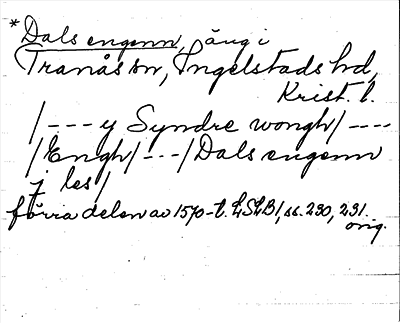 *Dals engenn, äng i
Tranås sn, Ingelstads hd,
Krist. l.
/---y Syndre wongh/----
/Engh/---/Dals engenn
j les/
förra delen av 1570-t. LSLB1, ss. 230, 231.
orig.